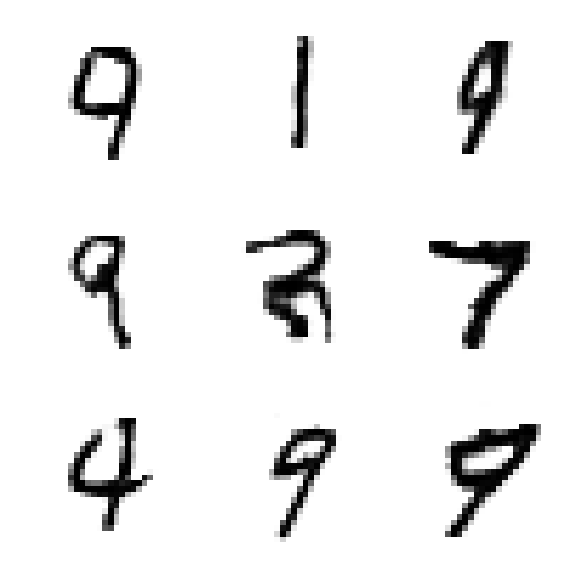 9 1 9
9 2 7
4 9 9